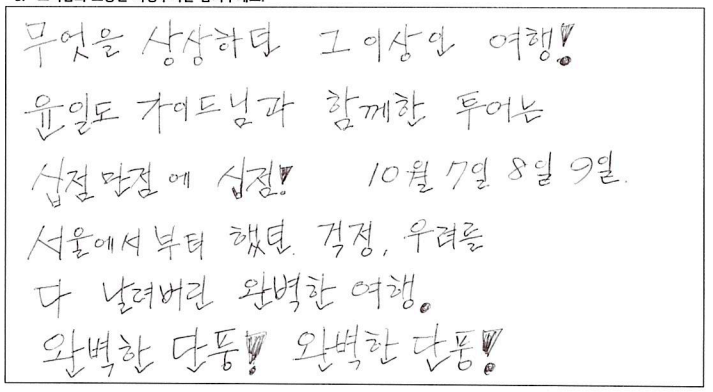 무엇을 상상하던 그 이상인 여행!
윤일도 가이드님과 함께한 투어는
십점만점에 십점! 10월 7일 8일 9일.
서울에서부터 했던 걱정, 우려를
다 날려버린 완벽한 여행.
완벽한 단풍! 완벽한 단풍!